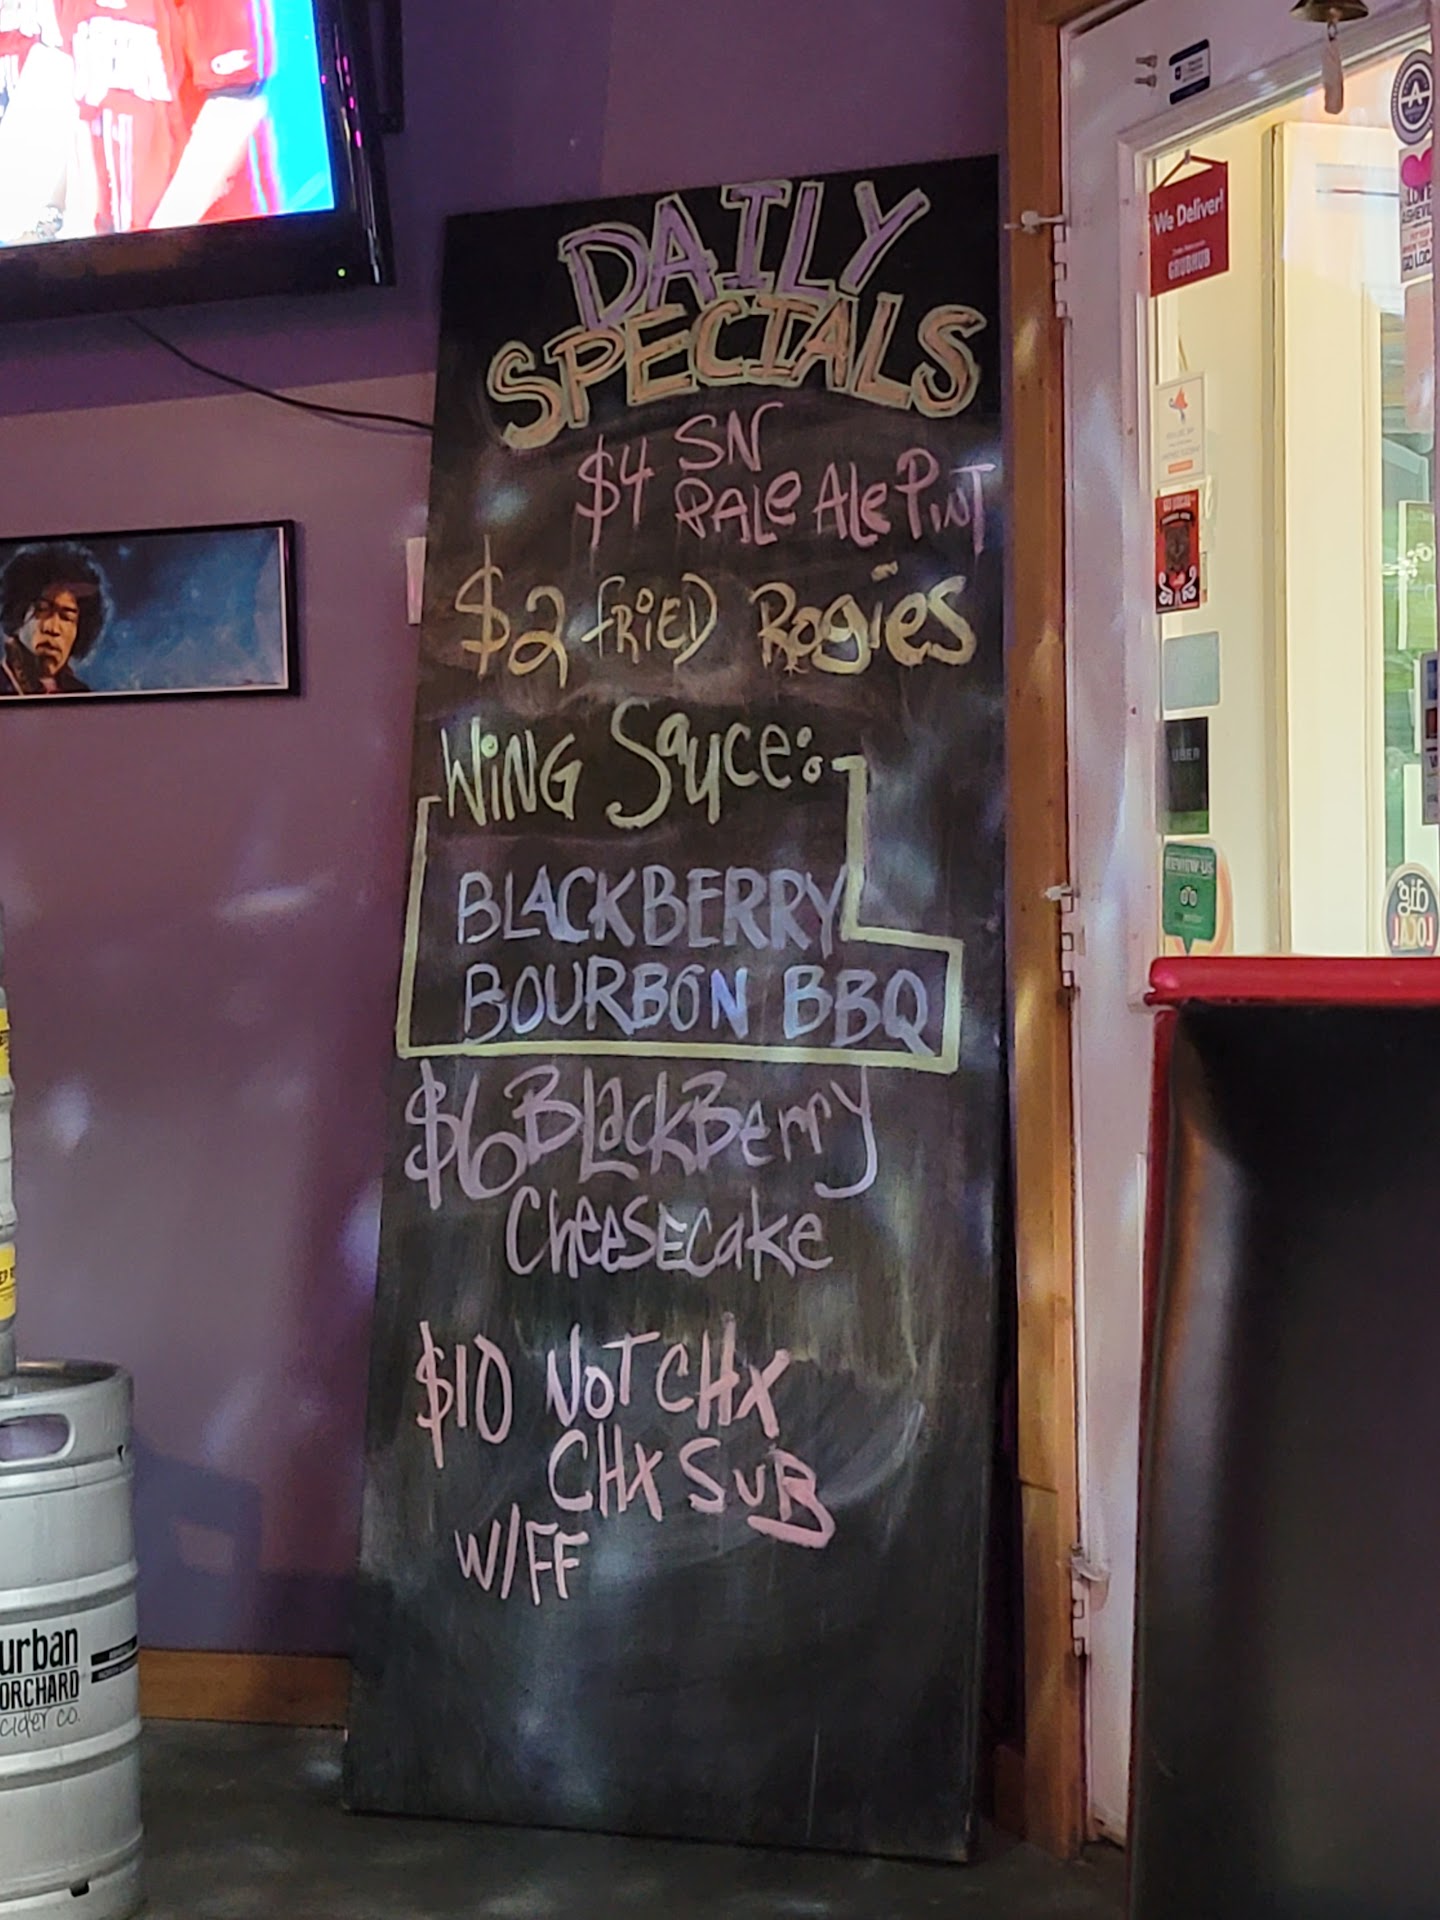 DAILY
SPECIALS
$4 SN
PALe Ale PiNT
$2 fRiED Rogies
WiNG Sauce:
BLACKBERRY
BOURBON BBQ
$6 BLackBerry
CheesEcake
$10 NoT CHX
CHX SuB
W/FF
We Deliver!
GRUBHUB
UBER
REVIEW US
dig
LOCAL
urban
ORCHARD
cider co.